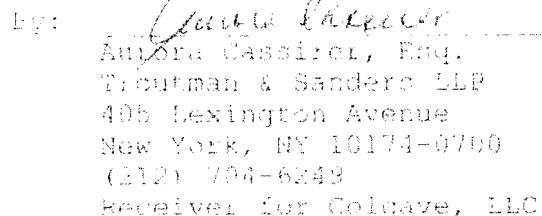 By:
Aurora Cassirer, Esq.
Troutman & Sanders LLP
405 Lexington Avenue
New York, NY 10174-0700
(212) 704-6249
Receiver for Coldave, LLC